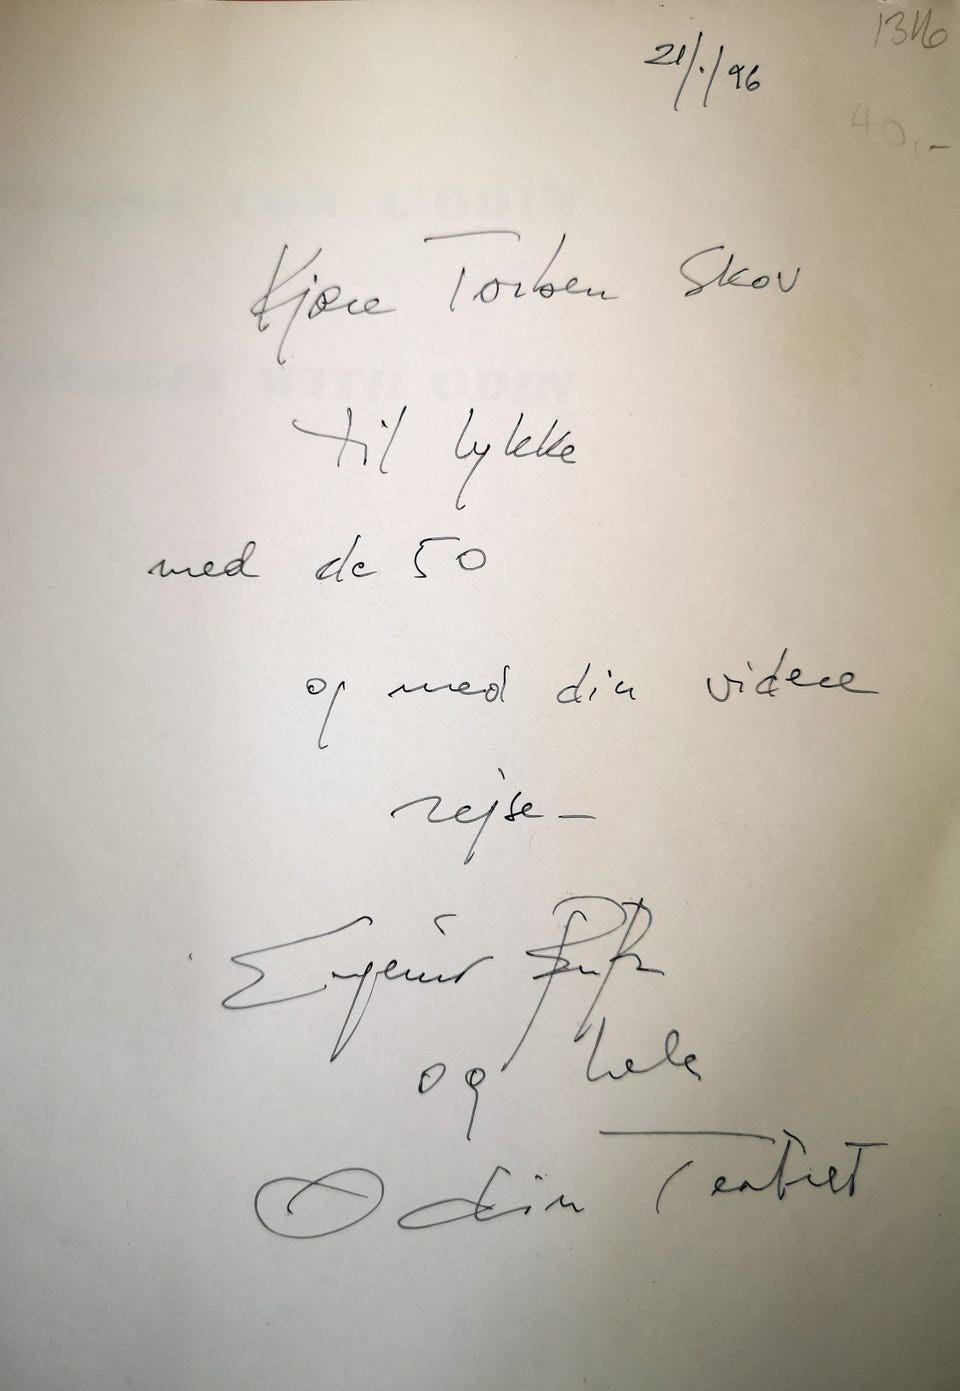 1346
21/1/96
40,-
CON L'ODIN
Kjære Torben Skov
WITH ODIN
til lykke
med de 50
og med din videre
rejse –
Eugenio Barba
og hele
Odin Teatret